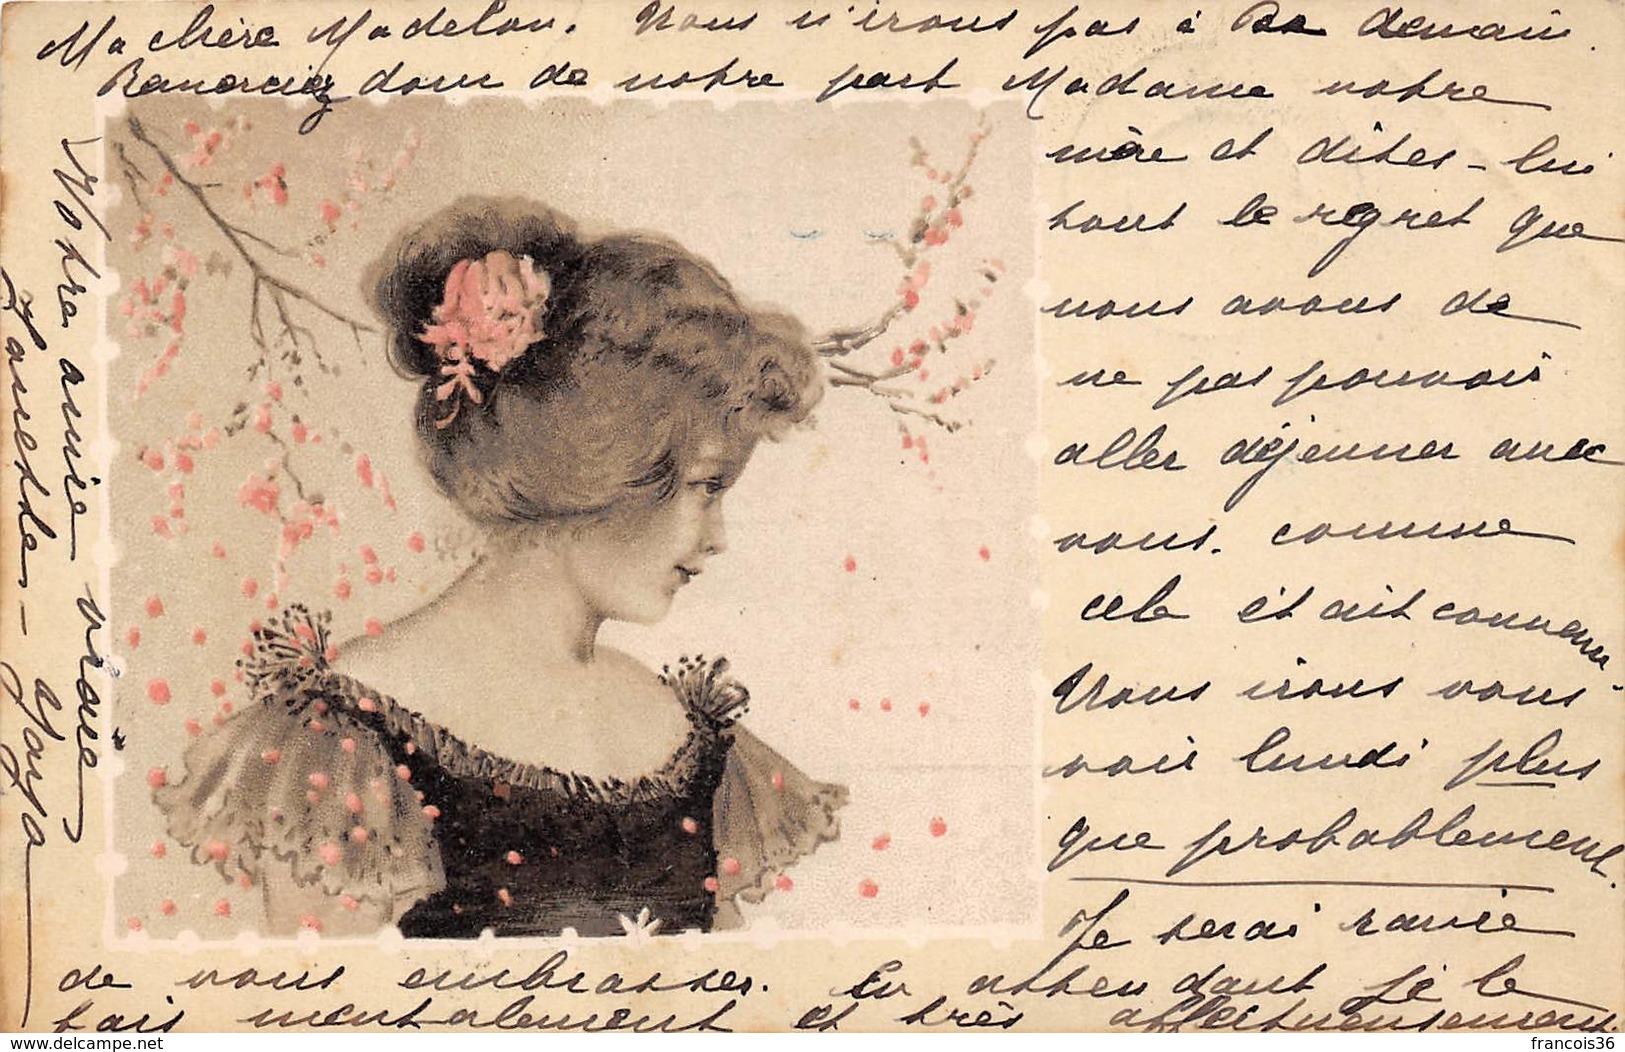 Ma chère Madelon. Nous n'irons pas à demain.
Remerciez donc de notre part Madame votre
mère et dites-lui
tout le regret que
nous avons de
ne pas pouvoir
aller déjeuner avec
vous. comme
cela était convenu.
Nous irons vous
voir lundi plus
que probablement.
Je serai ravie
de vous embrasser. En attendant je le
fais mentalement et très affectueusement.
Votre amie vraie
francois36